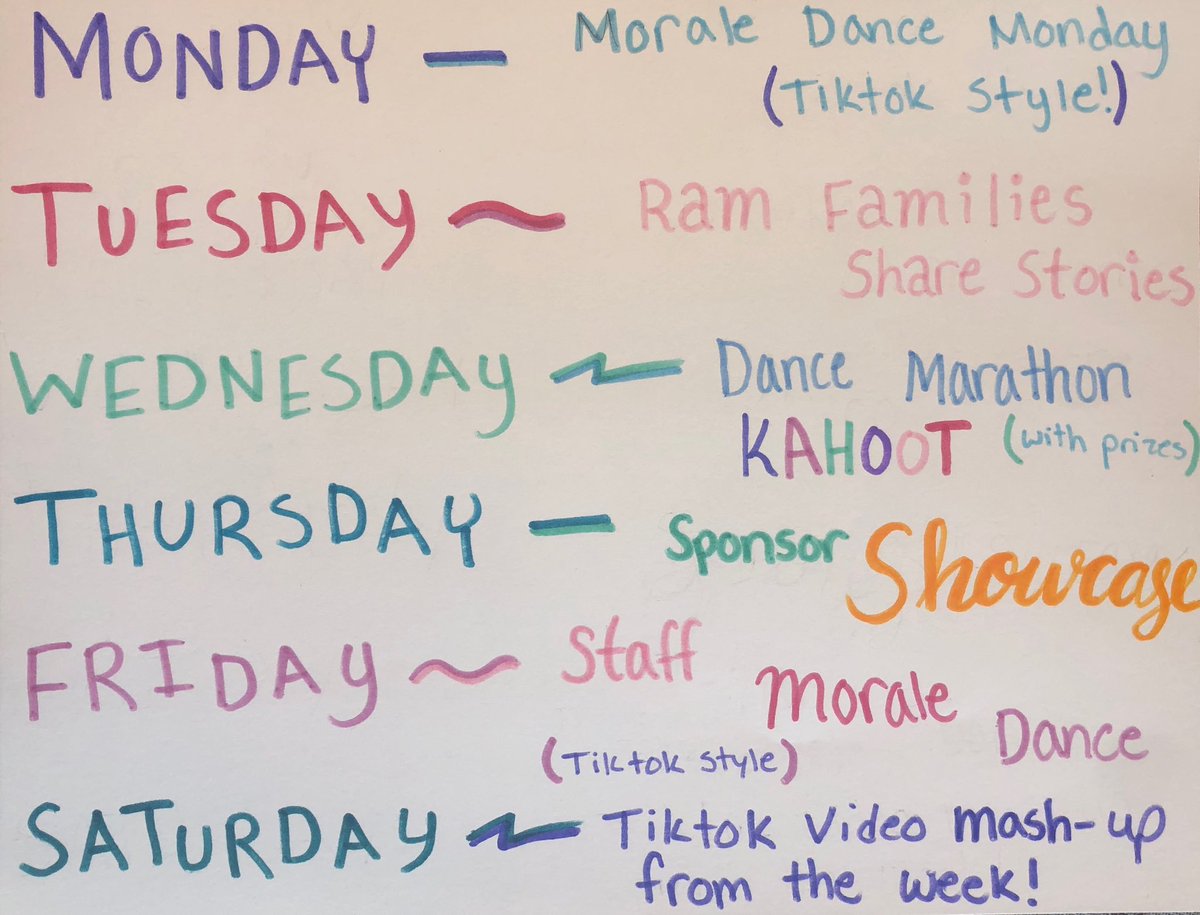 MONDAY — Morale Dance Monday
(Tiktok Style!)
TUESDAY ~ Ram Families
Share Stories
WEDNESDAY ~ Dance Marathon
KAHOOT (with prizes)
THURSDAY — Sponsor Showcase
FRIDAY ~ Staff Morale Dance
(Tiktok style)
SATURDAY ~ Tiktok Video mash-up
from the week!